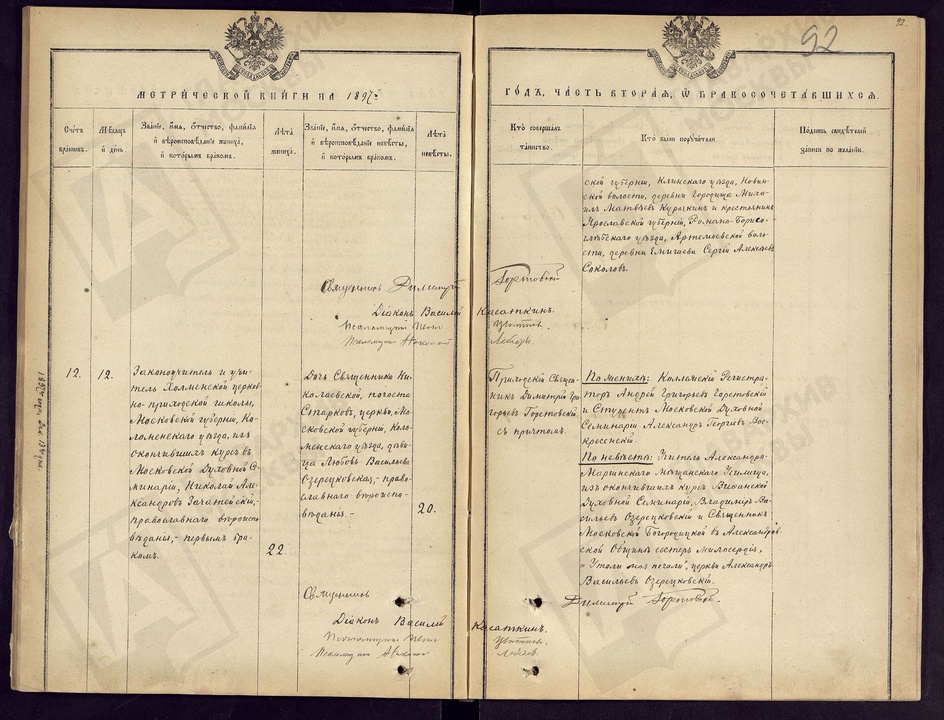 92.
92
МЕТРИЧЕСКОЙ КНИГИ НА 1897й
ГОДЪ, ЧАСТЬ ВТОРАЯ, Ѡ БРАКОСОЧЕТАВШИХСЯ.
Счетъ браковъ.
Мѣсяцъ и день.
Званіе, имя, отчество, фамилія
и вѣроисповѣданіе жениха,
и которымъ бракомъ.
Лѣта
жениха.
Званіе, имя, отчество, фамилія
и вѣроисповѣданіе невѣсты,
и которымъ бракомъ.
Лѣта
невѣсты.
Кто совершалъ
таинство.
Кто были поручители.
Подпись свидѣтелей
записи по желанію.
ской губерніи, Клинскаго уѣзда,
ской волости, деревни Городища Миха-
илъ Матвѣевъ Курочкинъ и крестьянинъ
Ярославской губерніи, Романо-Борисо-
глѣбскаго уѣзда, Артемьевской воло-
сти, деревни Сергій Алексѣевъ
Соколовъ.
Священникъ Димитрій
Діаконъ Василій Касаткинъ.
12.
12.
Законоучитель и учи-
тель Холменской церков-
но-приходской школы,
Московской губерніи, Ко-
ломенскаго уѣзда, изъ
окончившихъ курсъ въ
Московской Духовной Се-
минаріи, Николай Але-
ксандровъ Зачатейскій,
православнаго вѣроиспо-
вѣданія, - первымъ бра-
комъ.
22.
Дочь Священника Ни-
колаевской, погоста
Старковъ, церкви, Мо-
сковской губерніи, Коло-
менскаго уѣзда, дѣви-
ца Любовь Васильева
Озерецковская, - право-
славнаго вѣроиспо-
вѣданія. -
20.
Приходскій Священ-
никъ Димитрій Гри-
горьевъ Горстовскій
съ причтомъ.
По женихѣ: Коллежскій Регистра-
торъ Андрей Григорьевъ Горетовскій
и Студентъ Московской Духовной
Семинаріи Александръ Георгіевъ Вос-
кресенскій.
По невѣстѣ: Учитель Александро-
Маріинскаго Мѣщанскаго Училища,
изъ окончившихъ курсъ Виѳанской
Духовной Семинаріи, Владиміръ Ва-
сильевъ Озерецковскій и Священникъ
Московской Богородицкой въ Александров-
ской Общинѣ сестеръ милосердія,
„Утоли моя печали", церкви Александръ
Васильевъ Озерецковскій.
Священникъ Димитрій
Діаконъ Василій Касаткинъ.